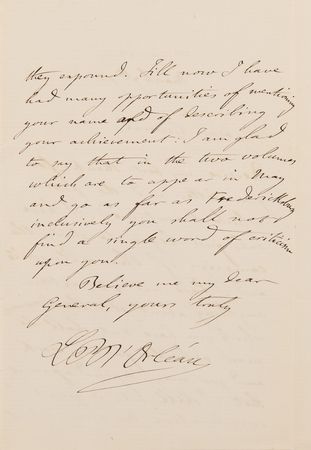 they expound. Till now I have
had many opportunities of mentioning
your name and of describing
your achievement: I am glad
to say that in the two volumes
which are to appear in May
and go as far as Fredericksburg
inclusively you shall not
find a single word of criticism
upon you.
Believe me my dear
General, yours truly
L P d'Orléans